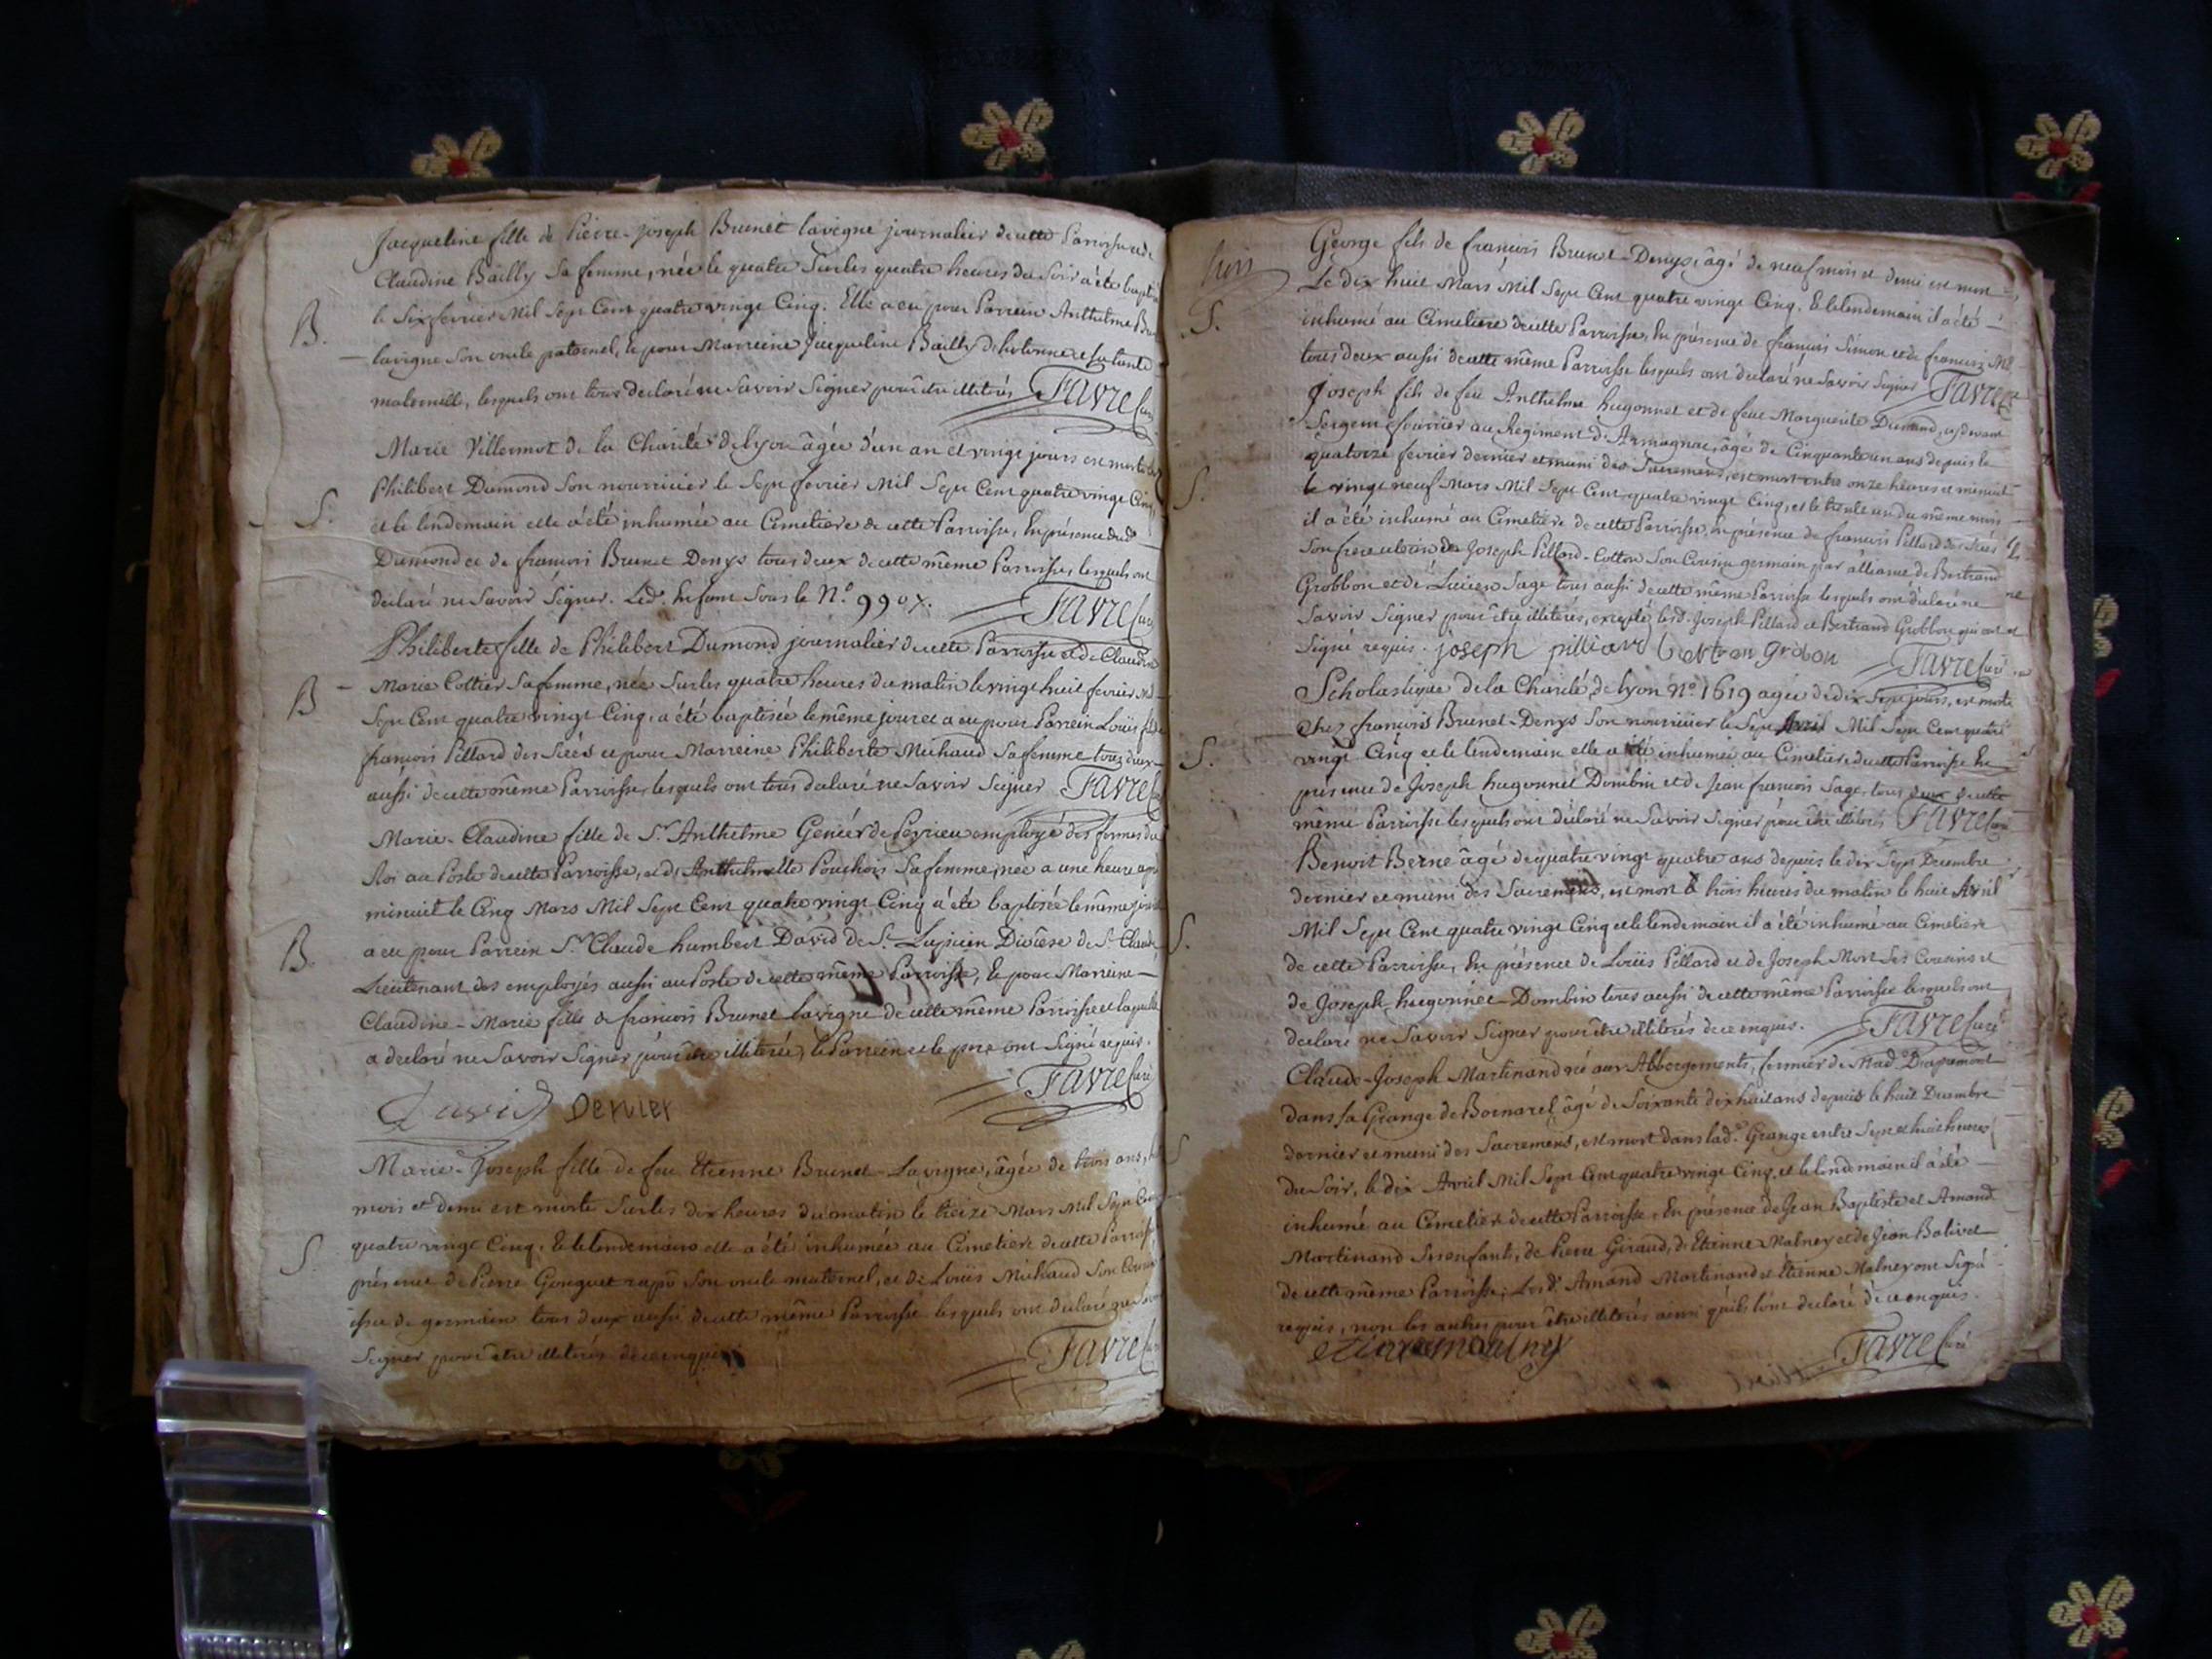 Jacqueline fille de Pierre-joseph Brunet lavigne journalier de cette Parroisse et de
Claudine Bailly Sa femme, née le quatre Sur les quatre heures du Soir a été
B.
le Six fevrier Mil Sept Cent quatre vingt Cinq. Elle a eu pour Parrein Anthelme
lavigne Son oncle paternel, et pour Marreine Jacqueline Bailly d'hotonne et Sa tante
maternelle, lesquels ont tous declaré ne Savoir Signer pour être illiterés FAVRE Curé
Marie Villermot de la Charité de lyon âgée d'un an et vingt jours est morte
Philibert Dumond Son nourricier le Sept fevrier Mil Sept Cent quatre vingt Cinq,
S.
et le lendemain elle a été inhumée au Cimetiere de cette Parroisse, En présence dud.
Dumond et de francois Brunet Denys tous deux de cette même Parroisse, lesquels ont
declaré ne Savoir Signer. Led. Enfant Sous le N.º FAVRE Curé
Philiberte fille de Philibert Dumond journalier de cette Parroisse et de Claudine
B
Marie Cottier Sa femme, née Sur les quatre heures du matin le vingt huit fevrier Mil
Sept Cent quatre vingt Cinq, a été baptisée le même jour et a eu pour Parrein Louis
francois Pillard des et pour Marreine Philiberte Michaud Sa femme tous deux
aussi de cette même Parroisse, lesquels ont tous declaré ne Savoir Signer FAVRE
Marie-Claudine fille de S.r Anthelme de employé des fermes du
Roi au Poste de cette Parroisse, et d'Anthelmette Sa femme, née a une heure après
minuit le Cinq Mars Mil Sept Cent quatre vingt Cinq a été baptisée le même jour
B.
a eu pour Parrein S.r Claude humbert David de S.t Lupicin Diocèse de S.t Claude
Lieutenant des employés aussi au Poste de cette même Parroisse, Et pour Marreine
Claudine-Marie fille de francois Brunet lavigne de cette même Parroisse laquelle
a declaré ne Savoir Signer pour être illiterée, le Parrein et le pere ont Signé requis.
FAVRE Curé
David
Marie-Joseph fille de feu Etienne Brunet-Lavigne, âgée de trois ans,
mois et demi est morte Sur les dix heures du matin le treize Mars Mil Sept Cent
S
quatre vingt Cinq, Et le lendemain elle a été inhumée au Cimetiere de cette Parroisse
présence de Pierre Son oncle maternel, et de Louis Michaud Son Cousin
issu de germain tous deux aussi de cette même Parroisse lesquels ont declaré ne Savoir
Signer pour être illiterés de ce enquis.
FAVRE Curé
George fils de francois Brunet-Denys, âgé de neuf mois et demi est mort
Le dix huit Mars Mil Sept Cent quatre vingt Cinq, Et le lendemain il a été
S.
inhumé au Cimetiere de cette Parroisse, En présence de francois Simon et de francois
tous deux aussi de cette même Parroisse lesquels ont declaré ne Savoir Signer FAVRE
Joseph fils de feu Anthelme hugonnet et de feue Marguerite Dumond, cy devant
Sergent fourrier au Regiment d'Armagnac, âgé de Cinquante un ans depuis le
quatorze fevrier dernier et muni des Sacremens, est mort entre onze heures et minuit
S.
le vingt neuf Mars Mil Sept Cent quatre vingt Cinq, et le trente un du même mois
il a été inhumé au Cimetiere de cette Parroisse, En présence de francois Pillard
Son frere uterin de Joseph Pillard-Cotton Son Cousin germain par alliance de Bertrand
Grobbon et de Lucien Sage tous aussi de cette même Parroisse lesquels ont declaré ne
Savoir Signer pour être illiterés, excepté led. Joseph Pillard et Bertrand Grobbon qui ont
Signé requis. joseph pilliard bertran grobon FAVRE Curé
Scholastique de la Charité de lyon Nº 1619 agée de dix Sept jours, est morte
Chez francois Brunet-Denys Son nourricier le Sept Avril Mil Sept Cent quatre
S.
vingt Cinq et le lendemain elle a été inhumée au Cimetiere de cette Parroisse En
présence de Joseph hugonnet Dombin et de Jean francois Sage, tous deux de cette
même Parroisse lesquels ont declaré ne Savoir Signer pour être illiterés FAVRE Curé
Benoit Berne âgé de quatre vingt quatre ans depuis le dix Sept Decembre
dernier et muni des Sacremens, est mort à trois heures du matin le huit Avril
S.
Mil Sept Cent quatre vingt Cinq et le lendemain il a été inhumé au Cimetiere
de cette Parroisse, En présence de Louis Pillard et de Joseph Mort Ses Cousins et
de Joseph hugonnet-Dombin tous aussi de cette même Parroisse lesquels ont
declaré ne Savoir Signer pour être illiterés de ce enquis. FAVRE Curé
Claude-Joseph Martinand né aux Abbergements, fermier de Mad.e
dans Sa Grange de âgé de Soixante dix huit ans depuis le huit Decembre
S
dernier et muni des Sacremens, est mort dans lad. Grange entre Sept et huit heures
du Soir, le dix Avril Mil Sept Cent quatre vingt Cinq, et le lendemain il a été
inhumé au Cimetiere de cette Parroisse, En présence de Jean Baptiste et Amand
Martinand Ses enfants, de Pierre Giraud, d'Etienne Malney et de Jean Bolivet
de cette même Parroisse; Les d. Amand Martinand et Etienne Malney ont Signé
requis, non les autres pour être illiterés ainsi qu'ils l'ont declaré de ce enquis.
FAVRE Curé